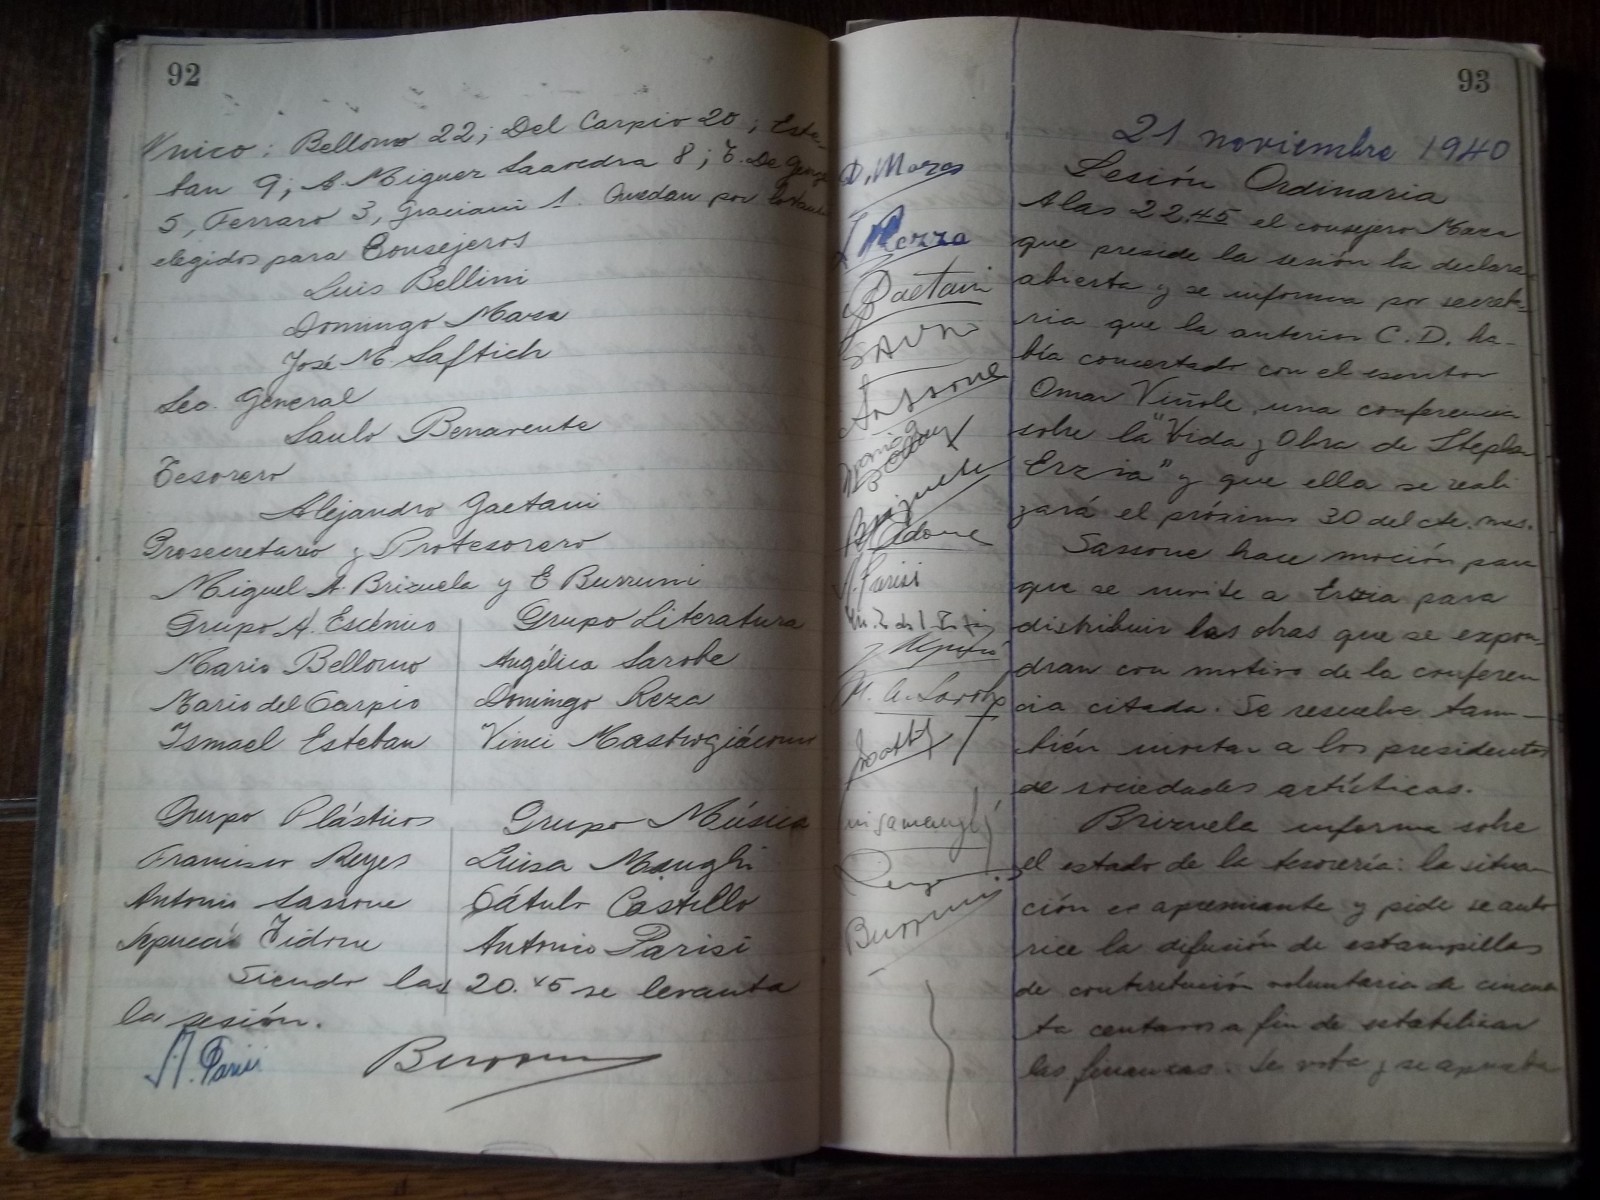 92
nico: Bellomo 22; Del Carpio 20; Este-
tan 9; A Miguez Saavedra 8; E. De
5, Ferraro 3, Graciani 1. Quedan por lo tanto
elegidos para Consejeros
Luis Bellini
Domingo Maza
José M. Saftich
Sec. General
Saulo Benavente
Tesorero
Alejandro Gaetani
Prosecretario y Protesorero
Miguel A. Brizuela y E Burruni
Grupo A. Escénico
Mario Bellomo
Mario del Carpio
Ismael Esteban
Grupo Literatura
Angélica Sarobe
Domingo Reza
Vinci Mastrogiácomo
Grupo Plásticos
Francisco Reyes
Antonio Sassone
Tidone
Grupo Música
Luisa Manghi
Cátulo Castillo
Antonio Parisi
Siendo las 20.45 se levanta
la sesión.
A. Parisi
Burruni
93
D. Maza
Gaetani
Sassone
Brizuela
Tidone
A. Parisi
Burruni
21 noviembre 1940
Sesión Ordinaria
A las 22.45 el consejero Maza
que preside la sesión la declara
abierta y se informa por secreta-
ria que la anterior C.D. ha-
bía concertado con el escritor
Omar Viñole, una conferencia
sobre la "Vida y Obra de Stephan
Erzia" y que ella se reali
zará el próximo 30 del cte. mes.
Sassone hace moción para
que se invite a Erzia para
distribuir las obras que se expon-
dran con motivo de la conferen
cia citada. Se resuelve tam-
bién invitar a los presidentes
de sociedades artísticas.
Brizuela informa sobre
el estado de la tesorería: la situa
ción es apremiante y pide se auto
rice la difusión de estampillas
de contribución voluntaria de cincuen
ta centavos a fin de estabilizar
las finanzas. Se vota y se aprueba